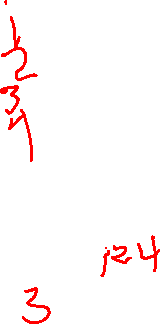 1
2
3
4
124
3